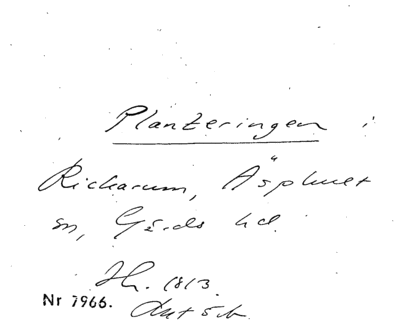 Planteringen i
Rickarum, Äsphult
sn, Gärds hd.
Th. 1813.
Nr 7966.